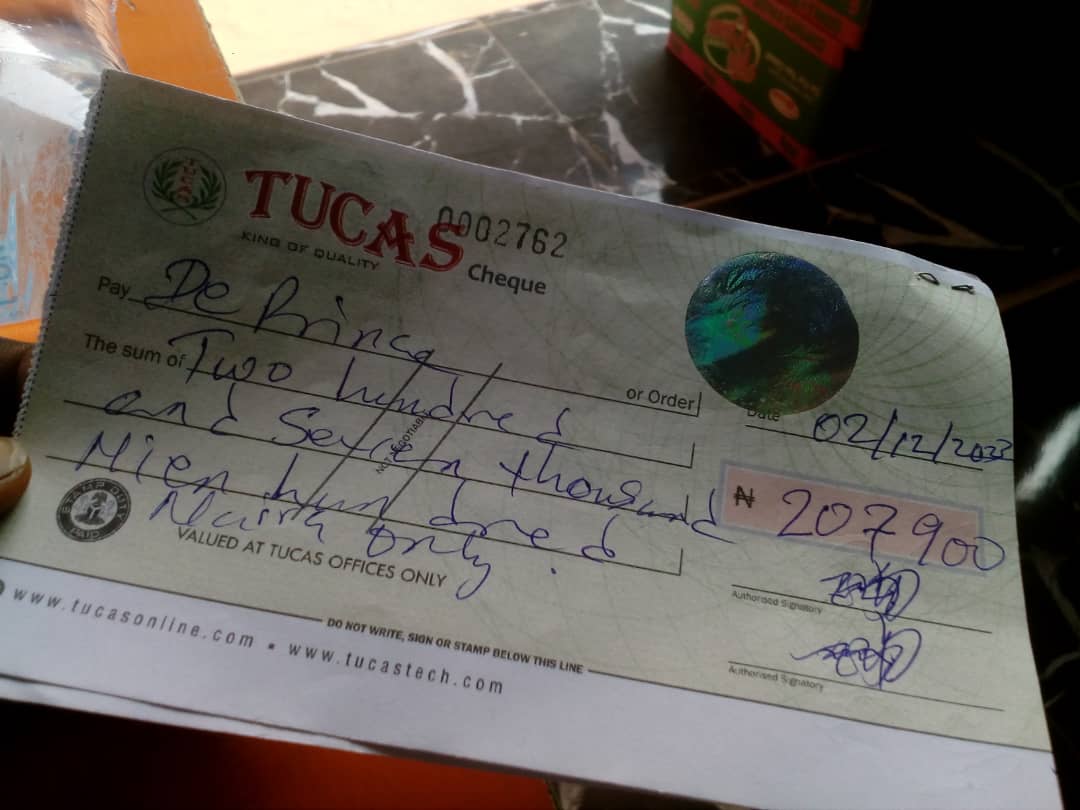 TUCAS
KING OF QUALITY
0002762
Cheque
Pay De Prince
or Order
The sum of Two hundred
and Seven thousand
Nien hundred
Naira only.
Date 02/12/2023
₦ 207900
STAMP DUTY PAID
VALUED AT TUCAS OFFICES ONLY
Authorised Signatory
Authorised Signatory
DO NOT WRITE, SIGN OR STAMP BELOW THIS LINE
www.tucasonline.com • www.tucastech.com